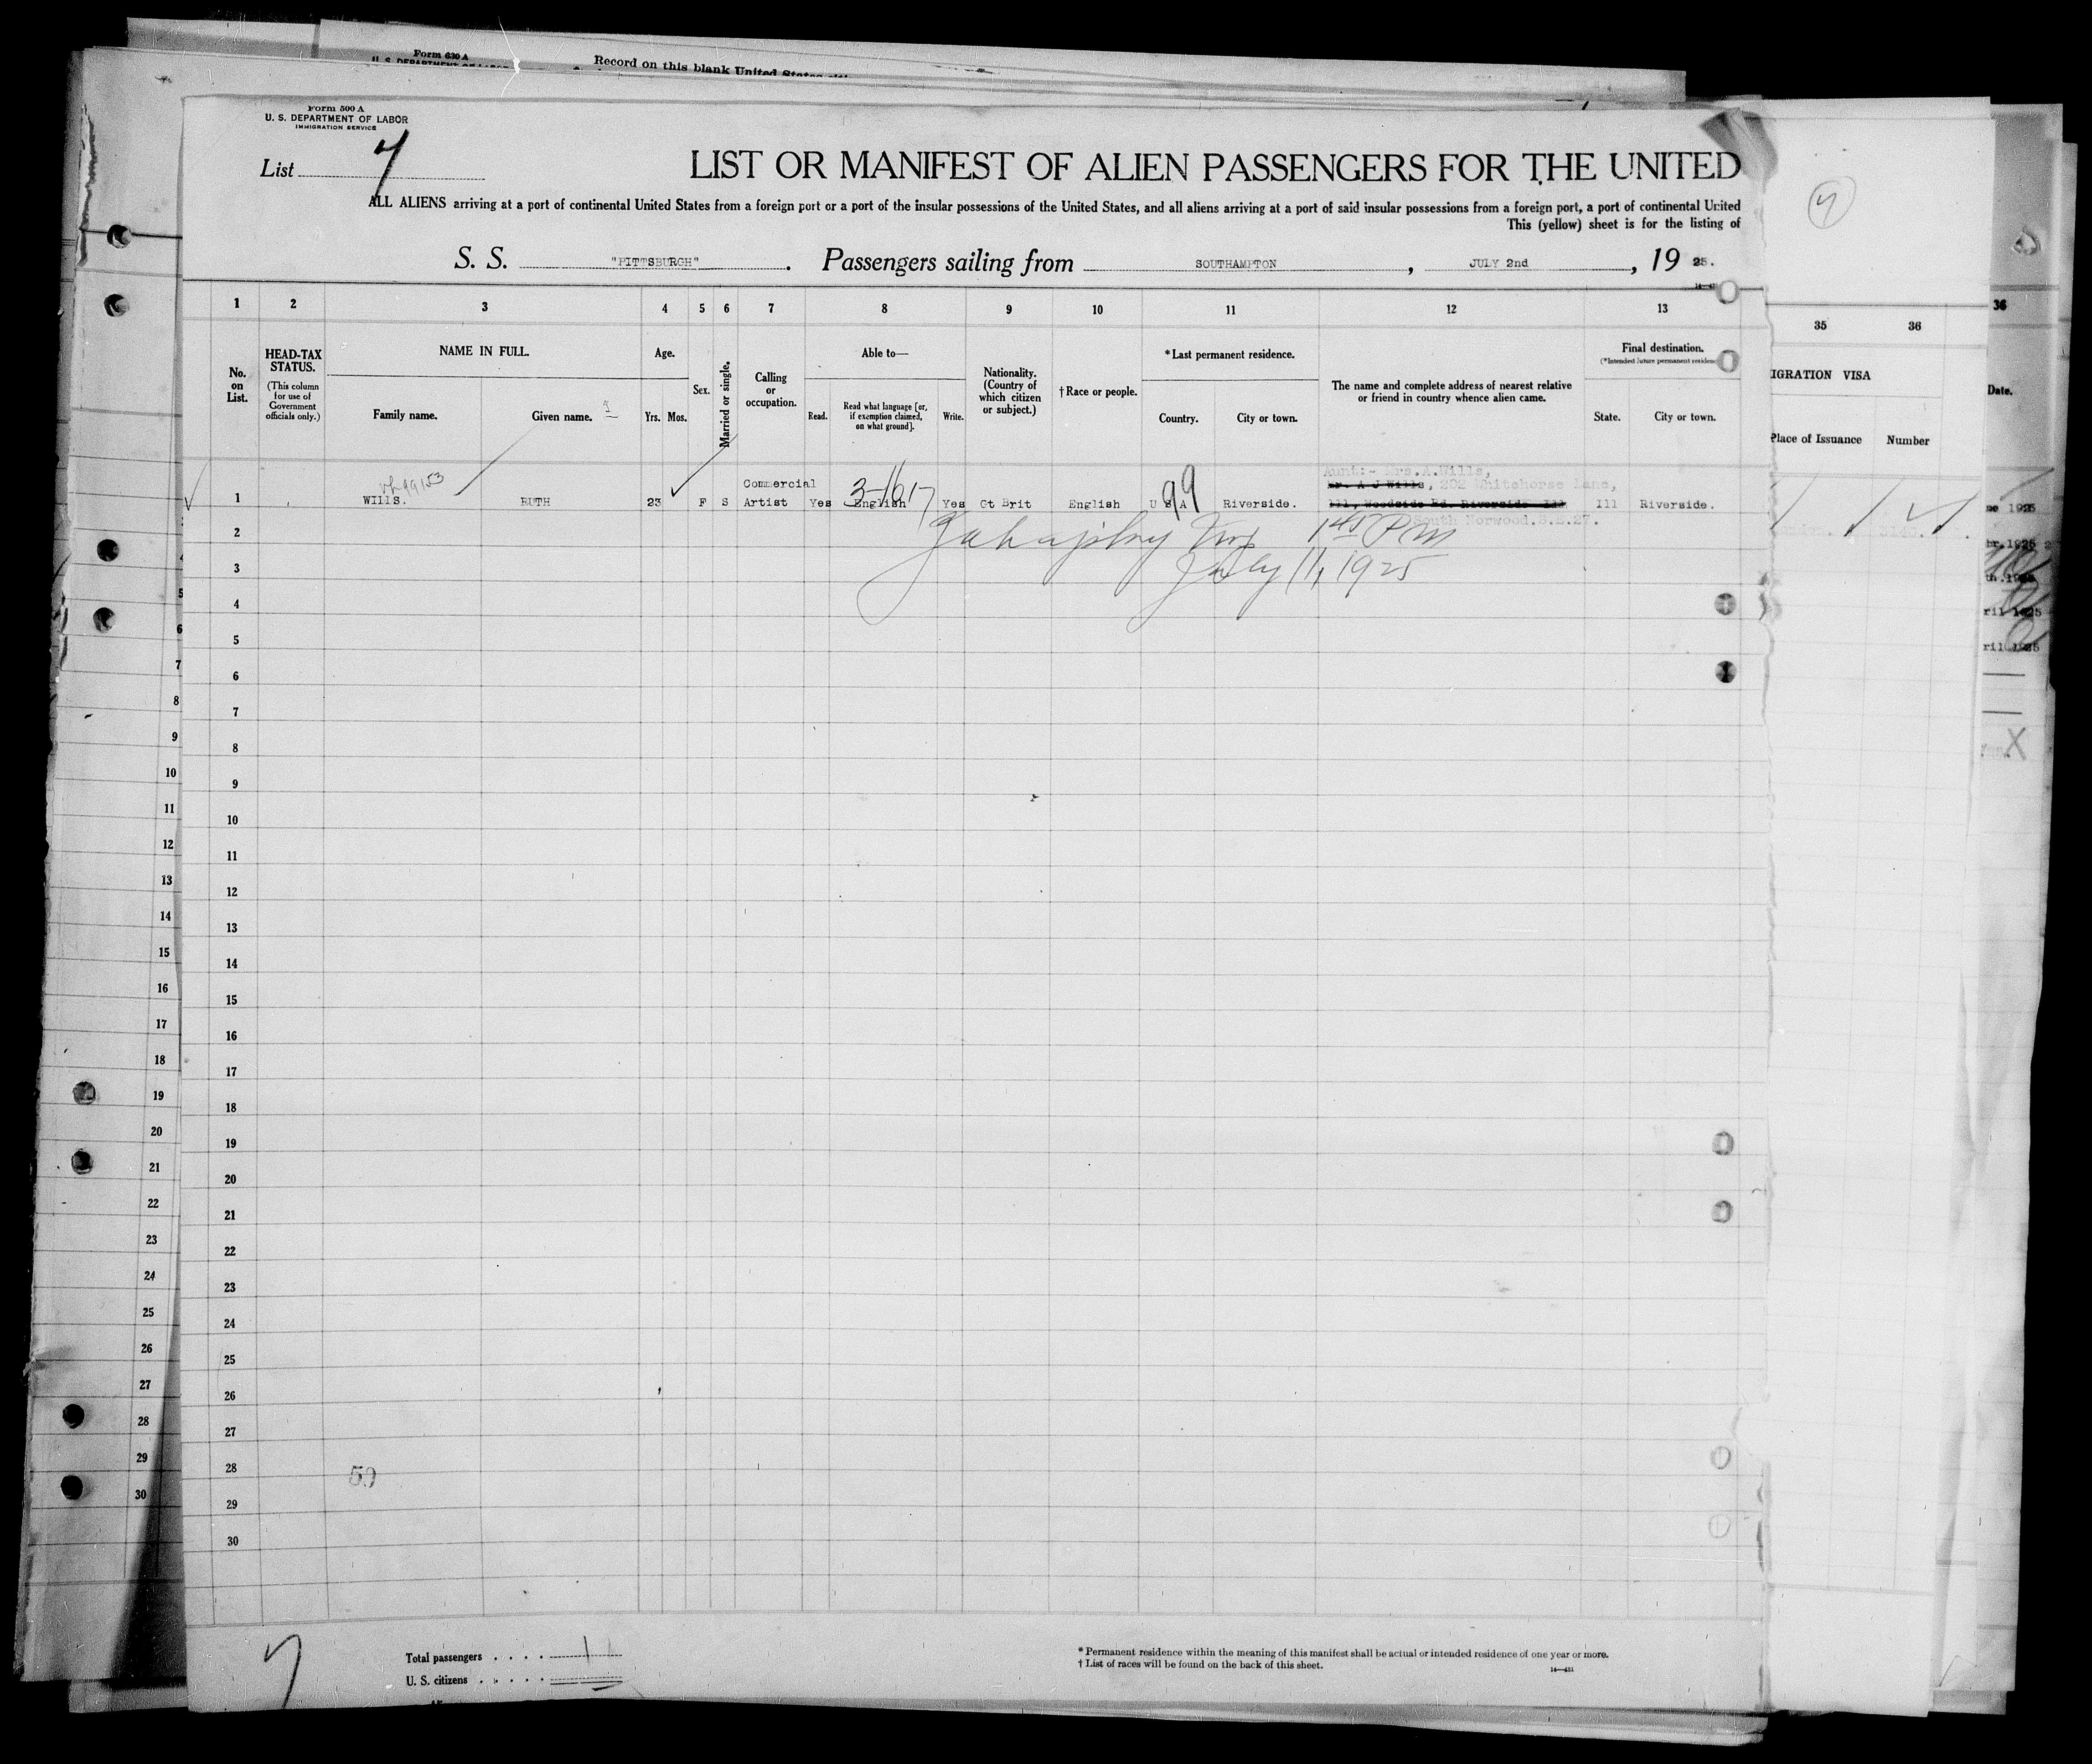 Form 630 A
Record on this blank United States
Form 500 A
U. S. DEPARTMENT OF LABOR
IMMIGRATION SERVICE
List 7
LIST OR MANIFEST OF ALIEN PASSENGERS FOR THE UNITED
ALL ALIENS arriving at a port of continental United States from a foreign port or a port of the insular possessions of the United States, and all aliens arriving at a port of said insular possessions from a foreign port, a port of continental United
This (yellow) sheet is for the listing of
7
S. S. "PITTSBURGH". Passengers sailing from SOUTHAMPTON, JULY 2nd, 19 25.
1 2 3 4 5 6 7 8 9 10 11 12 13
35 36
36
No. on List.
HEAD-TAX STATUS.
(This column for use of Government officials only.)
NAME IN FULL.
Family name. Given name.
Age.
Yrs. Mos.
Sex.
Married or single.
Calling or occupation.
Able to—
Read. Read what language [or, if exemption claimed, on what ground]. Write.
Nationality. (Country of which citizen or subject.)
† Race or people.
*Last permanent residence.
Country. City or town.
The name and complete address of nearest relative or friend in country whence alien came.
Final destination.
(*Intended future permanent residence
State. City or town.
IGRATION VISA
Place of Issuance Number
Date.
Aunt:- Mrs.A.Wills,
Commercial Mr. A J Wills, 202 Whitehorse Lane,
1 WILLS. RUTH 23 F S Artist Yes English Yes Gt Brit English U S A Riverside. 111, Woodside Rd. Riverside Ill Ill Riverside.
South Norwood.S.E.27.
3-1617
99
1 45 PM
July 11, 1925
2
3
4
5
6
7
8
9
10
11
12
13
14
15
16
17
18
19
20
21
22
23
24
25
26
27
28
29
30
5
6
7
8
9
10
11
12
13
14
15
16
17
18
19
20
21
22
23
24
25
26
27
28
29
30
59
7
Total passengers . . . . 1
U. S. citizens . . . . .
* Permanent residence within the meaning of this manifest shall be actual or intended residence of one year or more.
† List of races will be found on the back of this sheet.
14—431